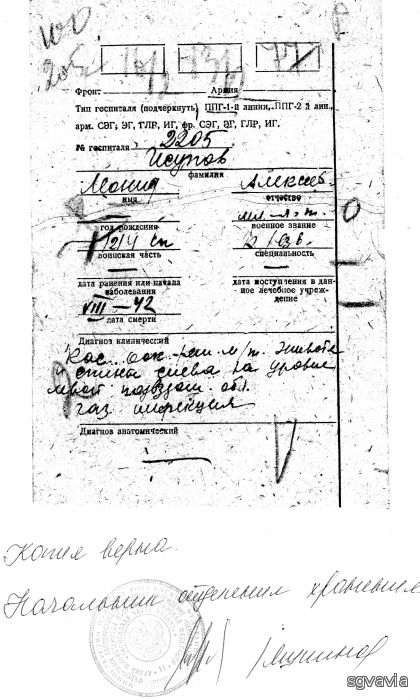 100
205
Фронт Армия
Тип госпиталя (подчеркнуть) ППГ-1-й линии, ППГ-2 й лин.,
арм. СЭГ; ЭГ, ГЛР, ИГ, фр. СЭГ, ЭГ, ГЛР, ИГ.
№ госпиталя 2205
Исупов
фамилия
Леонид Алексеев.
имя отчество
мл. л-т.
год рождения военное звание
1214 сп к-р взв.
воинская часть специальность
дата ранения или начала заболевания
дата поступления в данное лечебное учреждение
VIII — 42
дата смерти
Диагноз клинический
Кас. оск. ран. м/т. живота
и спина слева на уровне
левой подвздош. обл.
газ инфекция
Диагноз анатомический
Копия верна.
Начальник отделения хранения
sgvavia